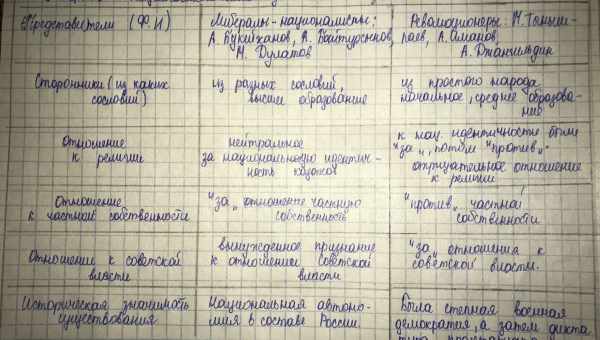 Представители (Ф.И)
Либералы-националисты:
А. Букейханов, А. Байтурсынов,
М. Дулатов
Революционеры: М. Тыныш-
паев, А. Иманов,
А. Джангильдин
Сторонники (из каких
сословий)
из разных сословий,
высшее образование
из простого народа
начальное, среднее образова-
ние
Отношение
к религии
нейтральное
за национальную идентич-
ность казахов
к нац. идентичности были
"за", потом "против".
отрицательное отношение
к религии
Отношение
к частной собственности
"за" отношение частную
собственность
"против" частной
собственности
Отношение к советской
власти
вынужденное признание
к отношении советской
власти
"за" отношения к
советской власти.
Историческая значимость
существования
Национальная автоно-
мия в составе России.
Была степная военная
демократия, а затем дикта